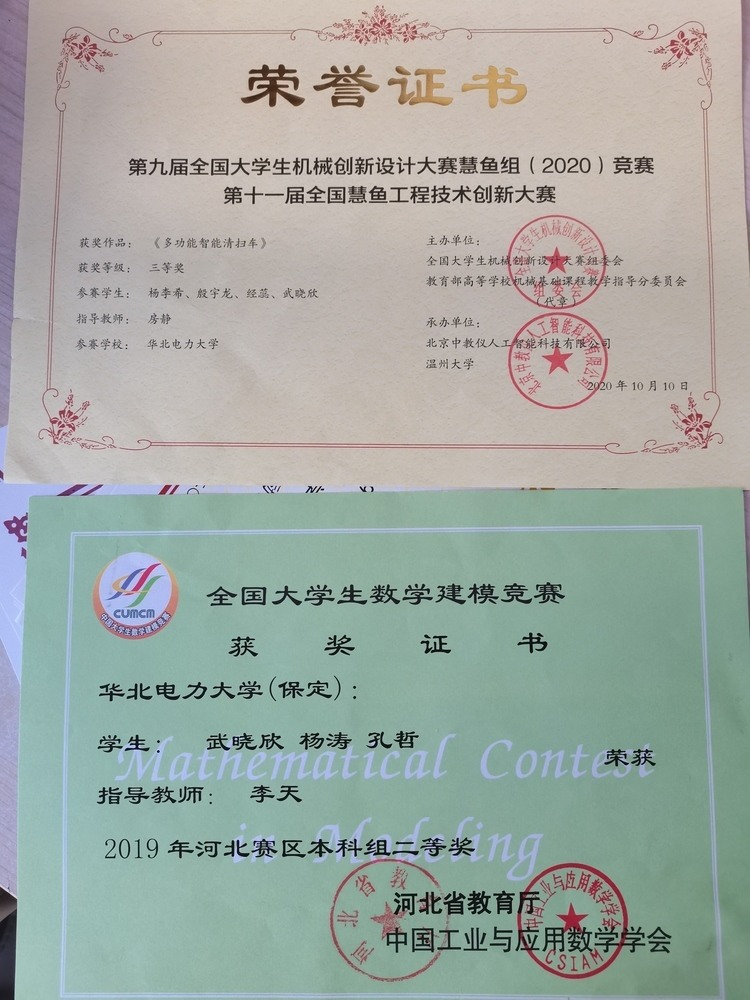 荣誉证书
第九届全国大学生机械创新设计大赛慧鱼组（2020）竞赛
第十一届全国慧鱼工程技术创新大赛
获奖作品：《多功能智能清扫车》
获奖等级：三等奖
参赛学生：杨李希、殷宇龙、经蕊、武晓欣
指导教师：房静
参赛学校：华北电力大学
主办单位：
全国大学生机械创新设计大赛组委会
教育部高等学校机械基础课程教学指导分委员会
（代章）
承办单位：
北京中教仪人工智能科技有限公司
温州大学
2020年10月10日
全国大学生机械创新设计大赛
组委会
北京中教仪人工智能科技有限公司
CUMCM
中国大学生数学建模竞赛
全国大学生数学建模竞赛
获奖证书
华北电力大学（保定）：
学生：武晓欣 杨涛 孔哲
荣获
指导教师：李天
2019年河北赛区本科组二等奖
Mathematical Contest
in Modeling
河北省教育厅
中国工业与应用数学学会
河北省教
中国工业与应用数学学会
CSIAM